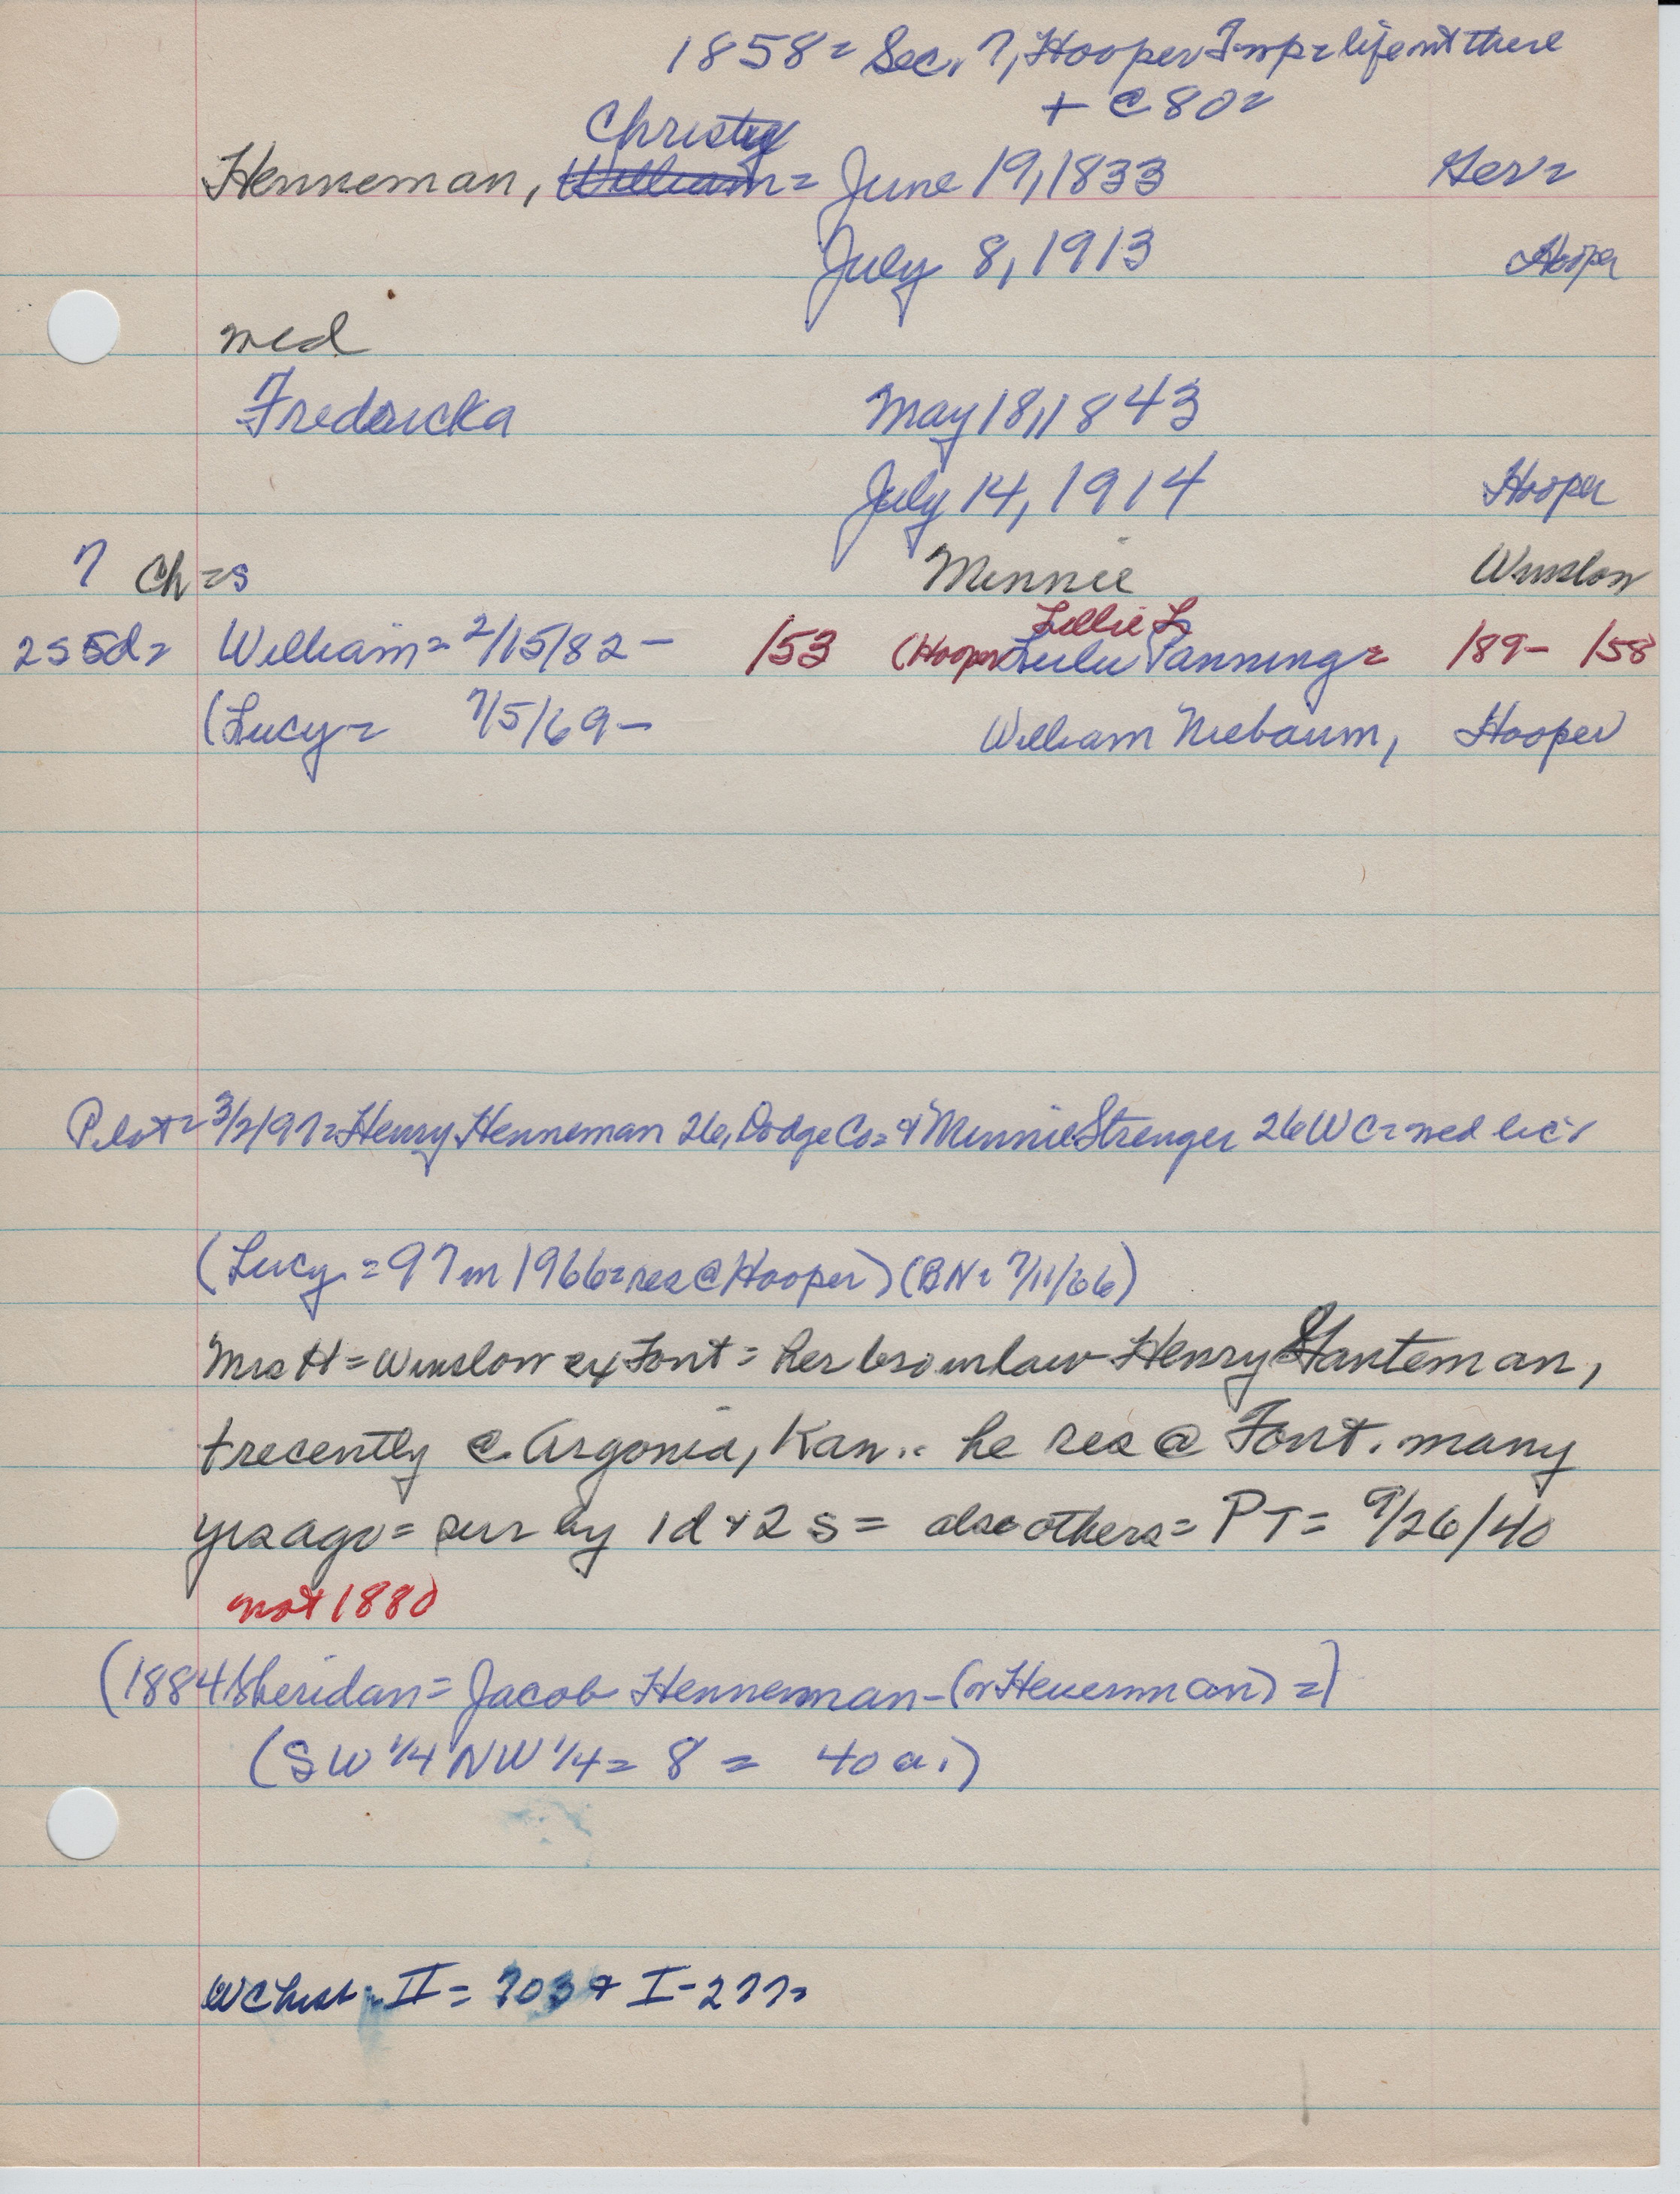 1858= Sec. 7, Hooper Twp= life mt there
+ @ 80=
Christy
Henneman, William= June 19, 1833 Ger=
July 8, 1913 Hooper
med
Fredericka May 18, 1843
July 14, 1914 Hooper
7 Ch=s Minnie Winslow
Lillie L
2s 5d= William= 2/15/82 - /53 (Hooper Lulu Panning= /89- /58
(Lucy= 7/5/69- William Niebaum, Hooper
Pilot= 3/2/97= Henry Henneman 26, Dodge Co= & Minnie Strenger 26 WC= med lic=
(Lucy = 97 in 1966= res @ Hooper) (BN= 7/11/66)
Mrs H= Winslow ex Font= her bro inlaw Henry Hanteman,
+ recently @ Argonia, Kan.. he res @ Font. many
yrs ago= sur by 1d & 2s= also others= PT= 9/26/40
not 1880
(1884 Sheridan= Jacob Henneman-(or Heuerman) =)
(SW 1/4 NW 1/4= 8 = 40 a.)
WC hist II= 703 & I-277=